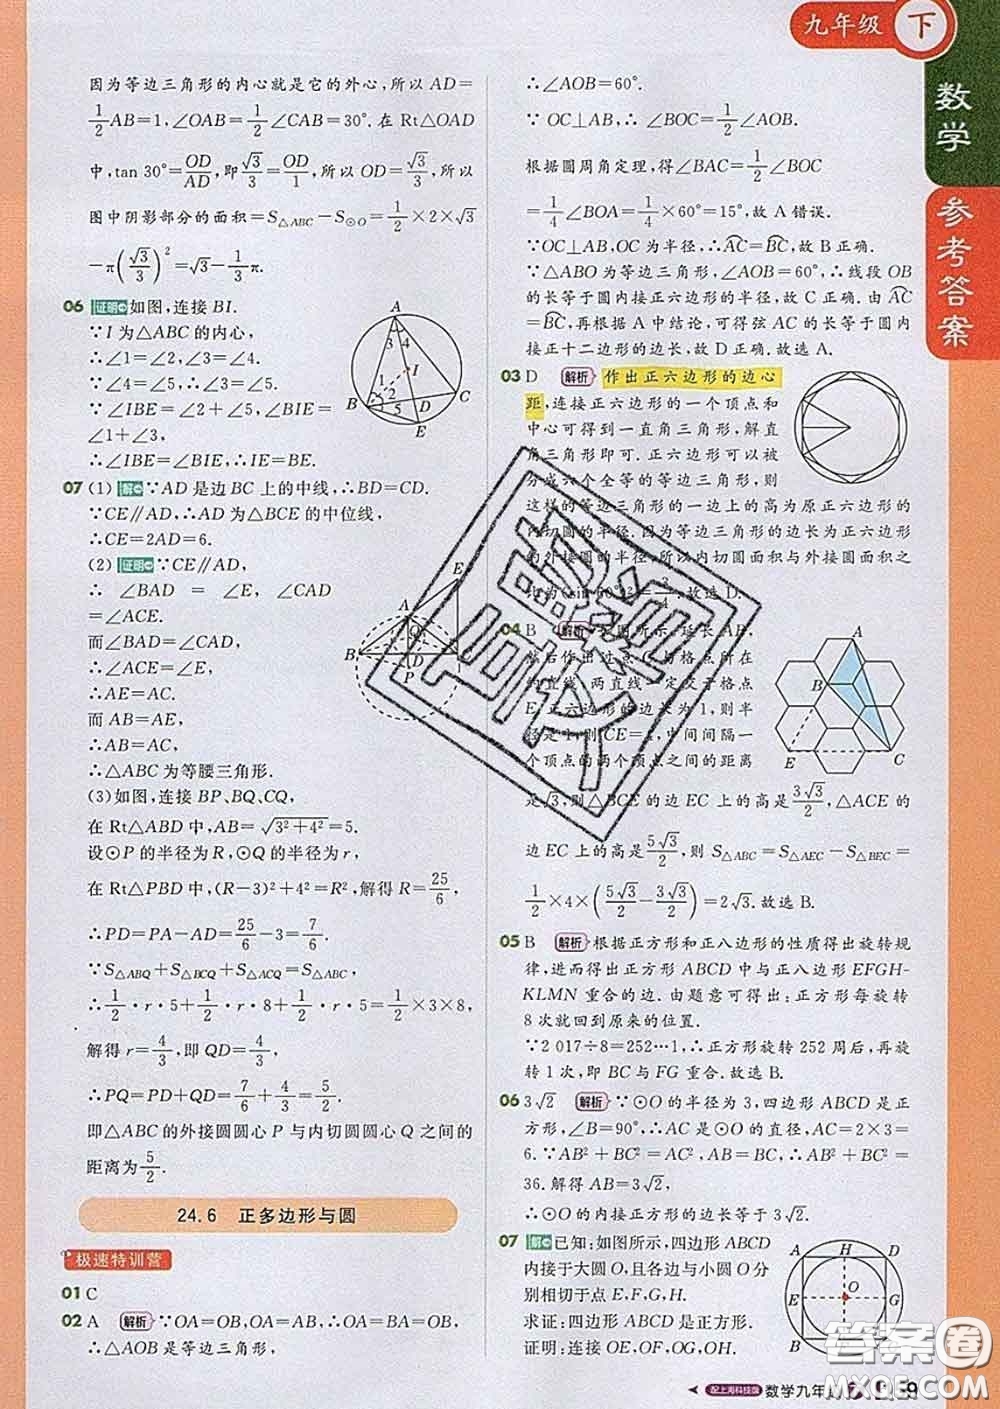 九年级 下
数学
参考答案
因为等边三角形的内心就是它的外心,所以 AD=
1/2AB=1,∠OAB=1/2∠CAB=30°.在 Rt△OAD
中,tan 30°=OD/AD,即√3/3=OD/1,所以 OD=√3/3,所以
图中阴影部分的面积=S△ABC-S⊙O=1/2×2×√3
-π(√3/3)²=√3-1/3π.
06 证明 如图,连接 BI.
∵I 为△ABC 的内心,
∴∠1=∠2,∠3=∠4.
∵∠4=∠5,∴∠3=∠5.
∵∠IBE=∠2+∠5,∠BIE=
∠1+∠3,
∴∠IBE=∠BIE,∴IE=BE.
07 (1) 解 ∵AD 是边 BC 上的中线,∴BD=CD.
∵CE∥AD,∴AD 为△BCE 的中位线,
∴CE=2AD=6.
(2) 证明 ∵CE∥AD,
∴ ∠BAD = ∠E, ∠CAD
=∠ACE.
而∠BAD=∠CAD,
∴∠ACE=∠E,
∴AE=AC.
而 AB=AE,
∴AB=AC.
∴△ABC 为等腰三角形.
(3)如图,连接 BP、BQ、CQ,
在 Rt△ABD 中,AB=√(3²+4²)=5.
设⊙P 的半径为 R,⊙Q 的半径为 r,
在 Rt△PBD 中,(R-3)²+4²=R²,解得 R=25/6,
∴PD=PA-AD=25/6-3=7/6.
∵S△ABQ+S△BCQ+S△ACQ=S△ABC,
∴1/2·r·5+1/2·r·8+1/2·r·5=1/2×3×8,
解得 r=4/3,即 QD=4/3,
∴PQ=PD+QD=7/6+4/3=5/2.
即△ABC 的外接圆圆心 P 与内切圆圆心 Q 之间的
距离为5/2.
24.6 正多边形与圆
极速特训营
01 C
02 A 解析 ∵OA=OB,OA=AB,∴OA=BA=OB,
∴△AOB 是等边三角形,
∴∠AOB=60°.
∵ OC⊥AB,∴∠BOC=1/2∠AOB.
根据圆周角定理,得∠BAC=1/2∠BOC
=1/4∠BOA=1/4×60°=15°,故 A 错误.
∵OC⊥AB,OC 为半径,∴AC=BC,故 B 正确.
∵△ABO 为等边三角形,∠AOB=60°,∴线段 OB
的长等于圆内接正六边形的半径,故 C 正确. 由 AC
=BC,再根据 A 中结论,可得弦 AC 的长等于圆内
接正十二边形的边长,故 D 正确.故选 A.
03 D 解析 作出正六边形的边心
距,连接正六边形的一个顶点和
中心可得到一直角三角形,解直
角三角形即可. 正六边形可以被
分成六个全等的等边三角形,则
这样的等边三角形的一边上的高为原正六边形的
内切圆的半径. 因为等边三角形的边长为正六边形
的外接圆的半径,所以内切圆面积与外接圆面积之
比为(sin 60°)²=3/4.故选 D.
04 B 解析 如图所示,延长 AB,
然后作出过点 C 与格点所在
的直线, 两直线一定交于格点
E.正六边形的边长为1,则半
径是1,则 CE=4. 中间间隔一
个顶点的两个顶点之间的距离
是√3,则△BCE 的边 EC 上的高是3√3/2,△ACE 的
边 EC 上的高是5√3/2,则 S△ABC=S△AEC-S△BEC=
1/2×4×(5√3/2-3√3/2)=2√3.故选 B.
05 B 解析 根据正方形和正八边形的性质得出旋转规
律,进而得出正方形 ABCD 中与正八边形 EFGH-
KLMN 重合的边. 由题意可得出:正方形每旋转
8次就回到原来的位置.
∵2 017÷8=252…1,∴正方形旋转 252 周后,再旋
转1次,即 BC 与 FG 重合.故选 B.
06 3√2 解析 ∵⊙O 的半径为 3,四边形 ABCD 是正
方形,∠B=90°,∴AC 是⊙O 的直径,AC=2×3=
6.∵AB²+BC²=AC²,AB=BC,∴AB²+BC²=
36.解得 AB=3√2,
∴⊙O 的内接正方形的边长等于 3√2.
07 解 已知:如图所示,四边形 ABCD
内接于大圆 O,且各边与小圆 O 分
别相切于点 E,F,G,H.
求证:四边形 ABCD 是正方形.
证明:连接 OE,OF,OG,OH.
配上海科技版 数学九年
答案圈